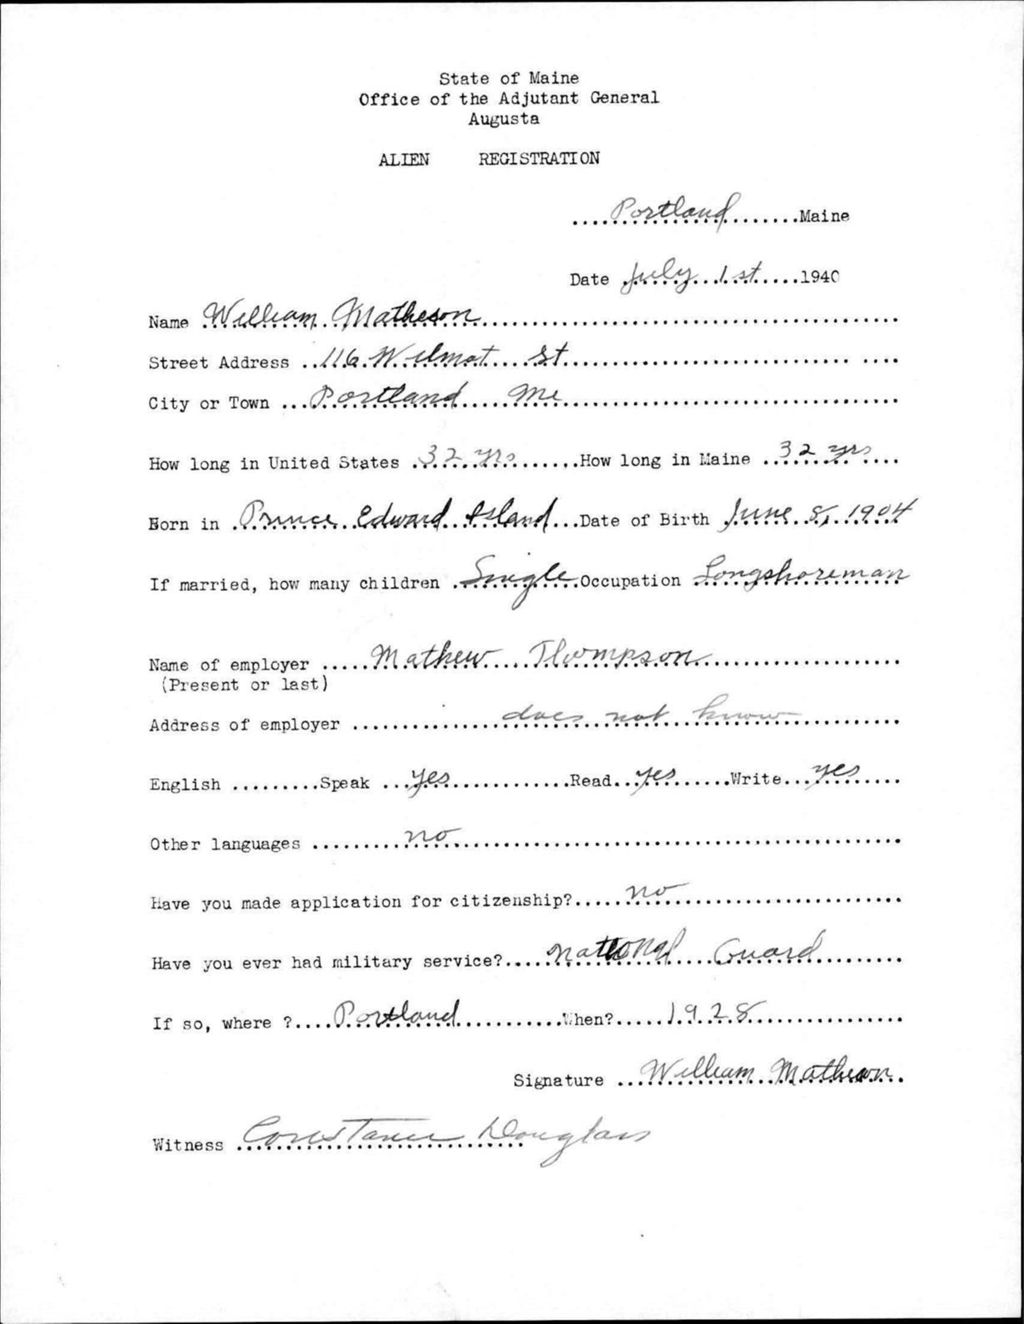 State of Maine
Office of the Adjutant General
Augusta
ALIEN REGISTRATION
....Portland........Maine
Date July 1st.....1940
Name William Matheson
Street Address ..116 Wilmot St
City or Town ...Portland Me
How long in United States .32 yrs.......How long in Maine ..32 yrs....
Born in .Prince Edward Island...Date of Birth June 8, 1904
If married, how many children .Single.Occupation Longshoreman
Name of employer .....Mathew Thompson
(Present or last)
Address of employer ..............does not know
English .........Speak ...yes.............Read..yes......Write...yes....
Other languages .........no
Have you made application for citizenship?.....no
Have you ever had military service?....National Guard
If so, where ?....Portland...........When?.....1928
Signature ...William Matheson
Witness Constance Douglass